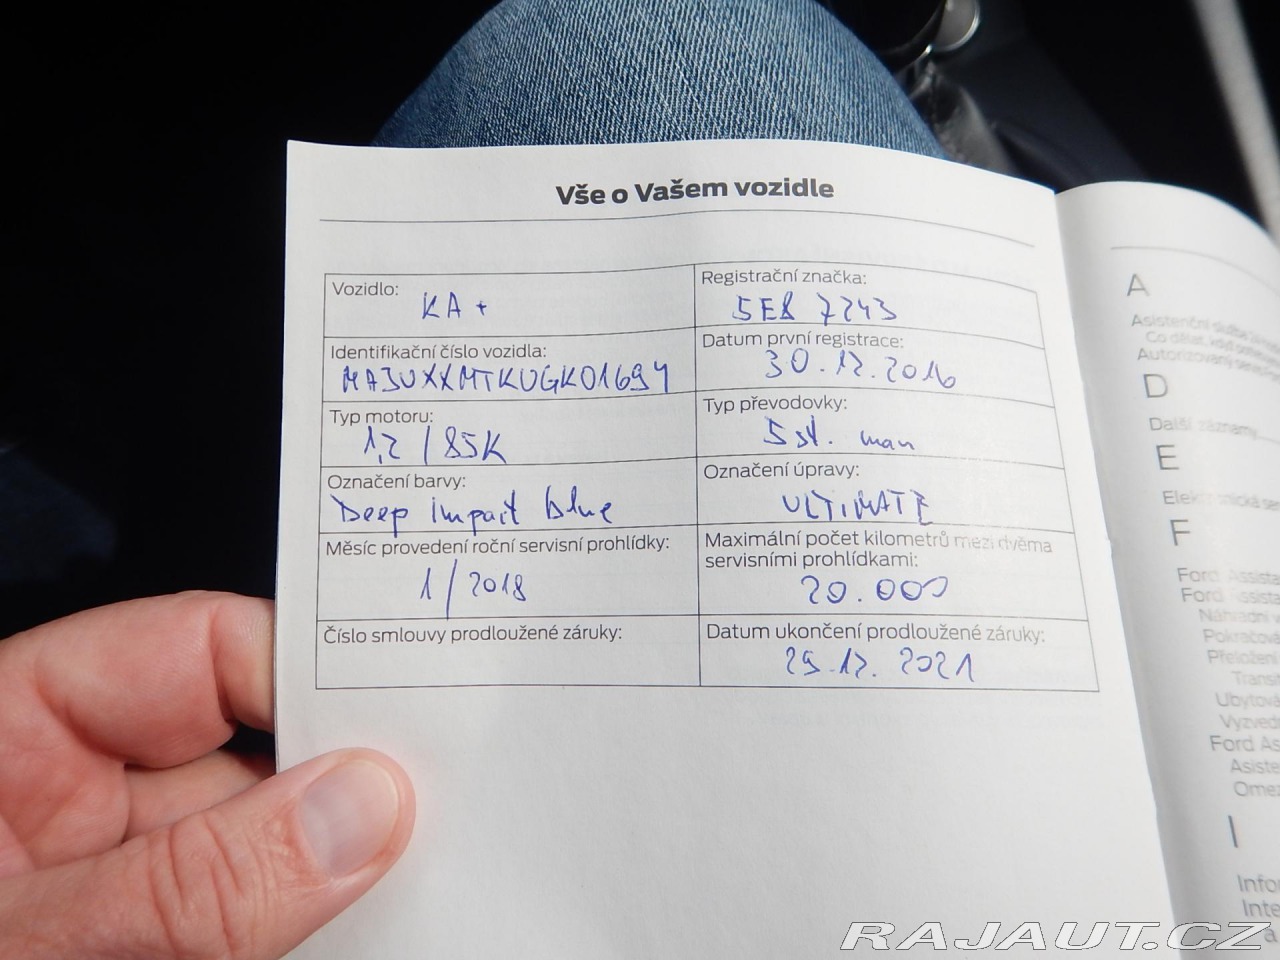 Vše o Vašem vozidle
Vozidlo:
KA+
Registrační značka:
5E8 7243
Identifikační číslo vozidla:
MAJUXXMTKUGK01694
Datum první registrace:
30.12.2016
Typ motoru:
1,2 / 85K
Typ převodovky:
5st. man
Označení barvy:
Deep impact blue
Označení úpravy:
ULTIMATE
Měsíc provedení roční servisní prohlídky:
1/2018
Maximální počet kilometrů mezi dvěma
servisními prohlídkami:
20.000
Číslo smlouvy prodloužené záruky:
Datum ukončení prodloužené záruky:
29.12.2021
A
Asistenční
Co dělat, když
Autorizovaný
D
Další záznamy
E
F
Ford
Ford
Náhradní
Ford
I
RAJAUT.CZ